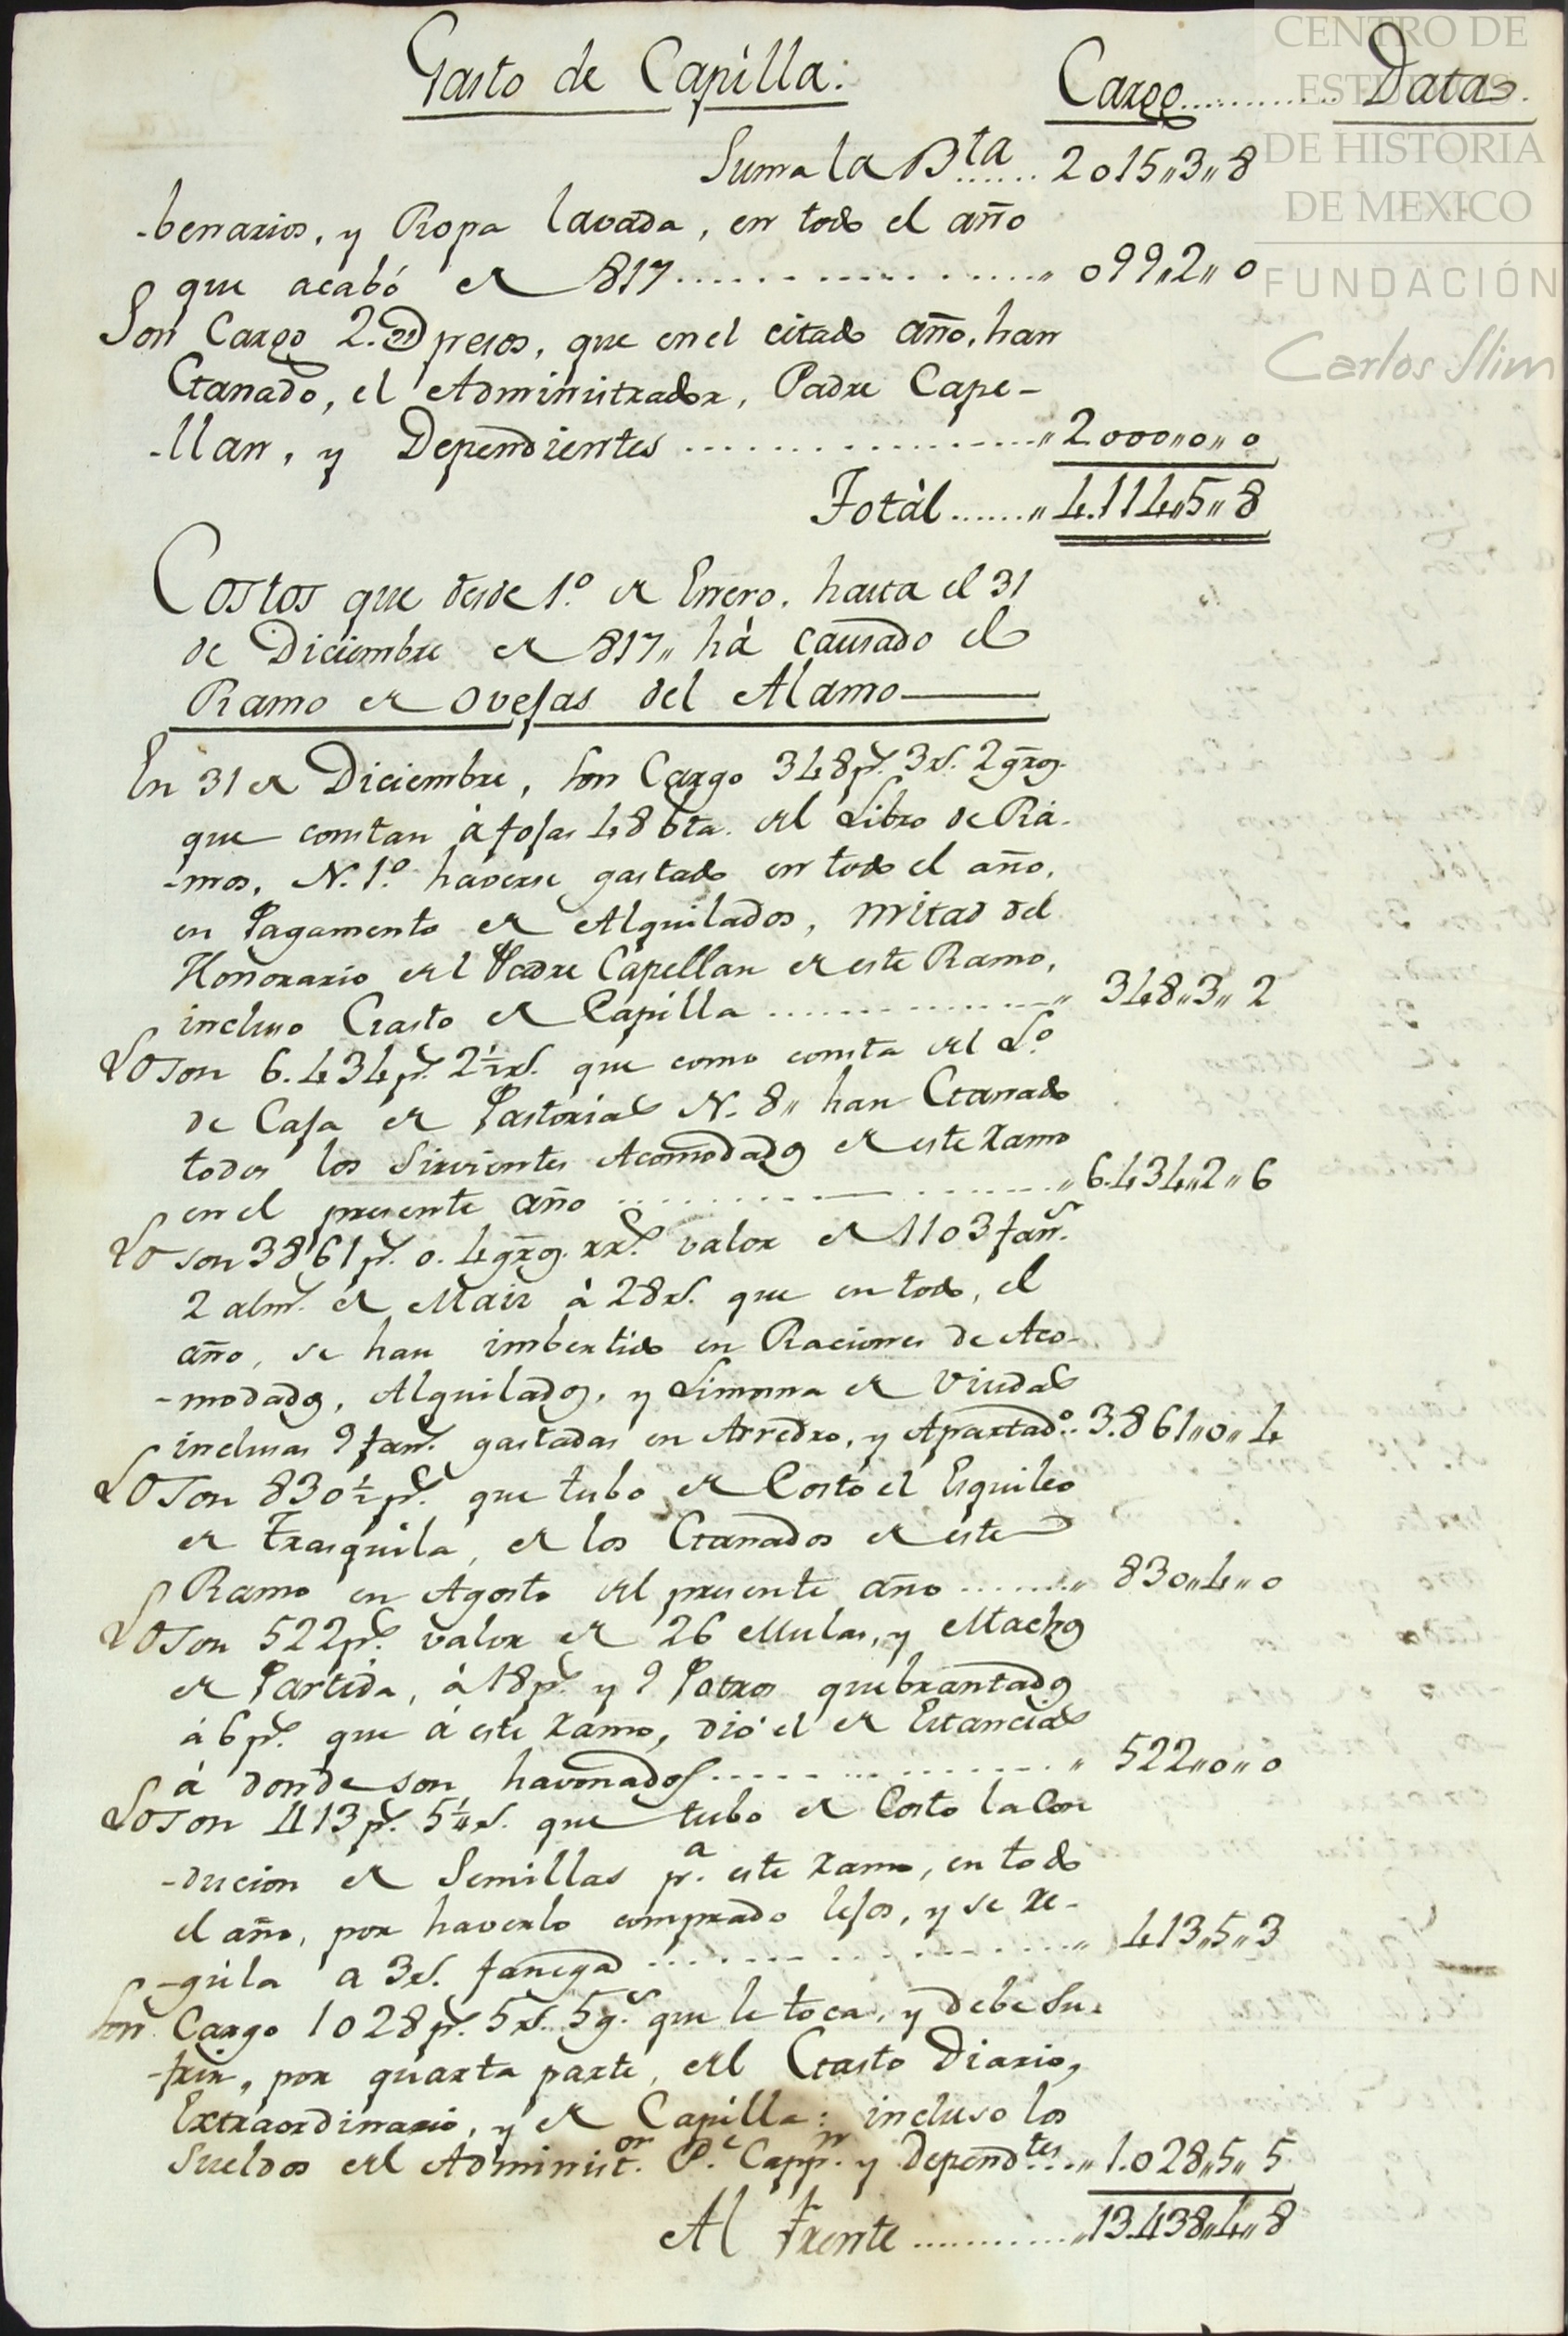 Gasto de Capilla.
Cargo............ Data.
Suma la Bta...... 2015,,3,,8
-benarios, y Ropa lavada, en todo el año
que acabó de 817.................,, 099,,2,,0
Son Cargo 2.@ pesos, que en el citado año, han
Ganado, el Administrador, Padre Cape-
-llan, y Dependientes .................,, 2000,,0,,0
Totàl.......,, 4.114,,5,,8
Costos que desde 1.º de Enero, hasta el 31
de Diciembre de 817,, hà causado el
Ramo de Ovejas del Alamo
En 31 de Diciembre, son Cargo 348ps. 3rs. 2grõs.
que constan à fojas 48 bta. del Libro de Rà-
-mos, N. 1.º haverse gastado en todo el año,
en Pagamento de Alquilados, mitad del
Honorario del Padre Capellan de este Ramo,
incluso Gasto de Capilla ...............,, 348,,3,,2
Lo son 6.434ps. 2½rs. que como consta del L.º
de Caja de Pastorias N. 8,, han Ganado
todos los Sirvientes Acomodados de este ramo
en el presente año ...............,, 6.434,,2,,6
Lo son 3861ps. 0. 4grõs. rrs. valor de 1103 fans.
2 alms. de Maiz à 28rs. que en todo, el
año, se han imbertido en Raciones de Aco-
-modados, Alquilados, y Limosna de Viudas
inclusas 9 fans. gastadas en Arredro, y Apartadº.. 3.861,,0,,4
Lo son 830½ps. que tubo de Costo el Esquileo
de Trasquila, de los Ganados de este
Ramo en Agosto del presente año ........,, 830,,4,,0
Lo son 522ps. valor de 26 Mulas, y Machos
de Partida, à 18ps. y 9 Potros quebrantados
à 6ps. que à este ramo, diò el de Estancias
à donde son havonados...............,, 522,,0,,0
Lo son 413ps. 5¼rs. que tubo de Costo la Con
-ducion de Semillas pª. este ramo, en todo
el año, por haverlo comprado lejos, y se re-
-gùla a 3rs. fanega ...............,, 413,,5,,3
Son Cargo 1028ps. 5rs. 5gs. que le toca, y debe Su-
-frir, por quarta parte, del Gasto Diario,
Extraordinario, y de Capilla: incluso los
Sueldos del Administ.or P.e Capp.n y Depend.tes...,, 1.028,,5,,5
Al frente ............,, 13.438,,4,,8
CENTRO DE
ESTUDIOS
DE HISTORIA
DE MEXICO
FUNDACIÓN
Carlos Slim